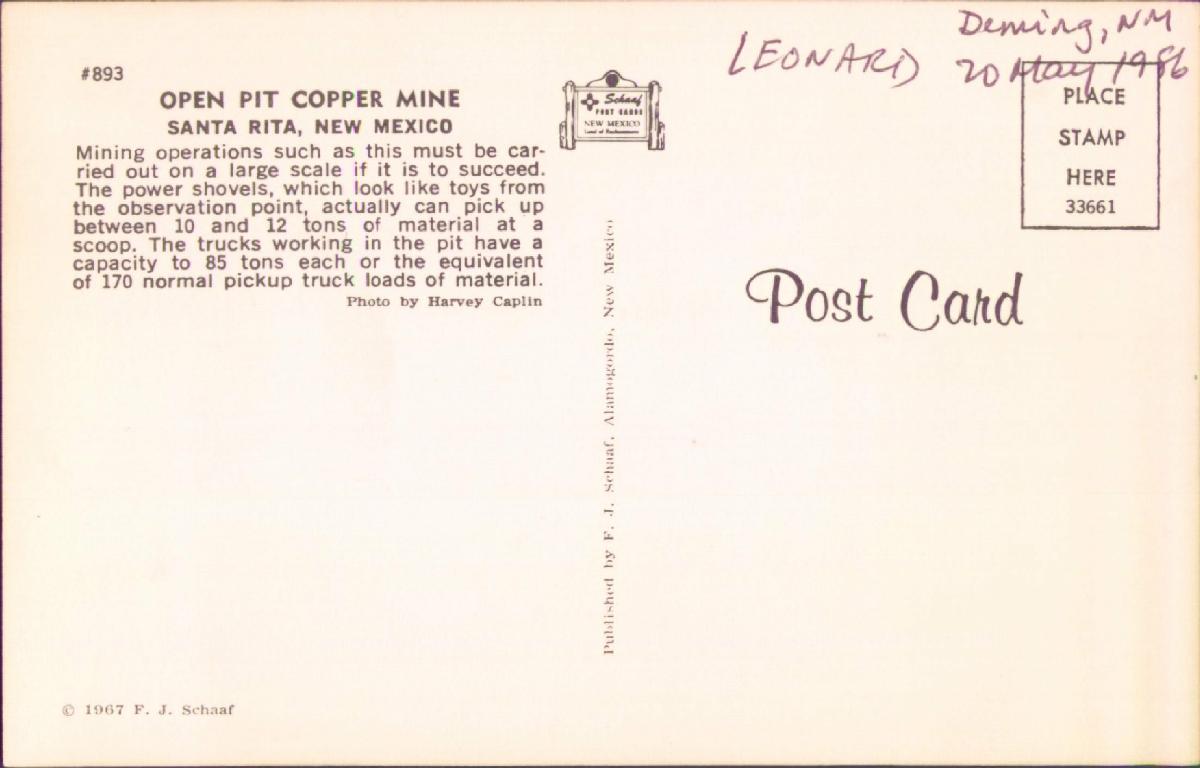 LEONARD
Deming, NM
20 May 1986
#893
OPEN PIT COPPER MINE
SANTA RITA, NEW MEXICO
Mining operations such as this must be car-
ried out on a large scale if it is to succeed.
The power shovels, which look like toys from
the observation point, actually can pick up
between 10 and 12 tons of material at a
scoop. The trucks working in the pit have a
capacity to 85 tons each or the equivalent
of 170 normal pickup truck loads of material.
Photo by Harvey Caplin
© 1967 F. J. Schaaf
Schaaf
POST CARDS
NEW MEXICO
Land of Enchantment
Published by F. J. Schaaf, Alamogordo, New Mexico
PLACE
STAMP
HERE
33661
Post Card